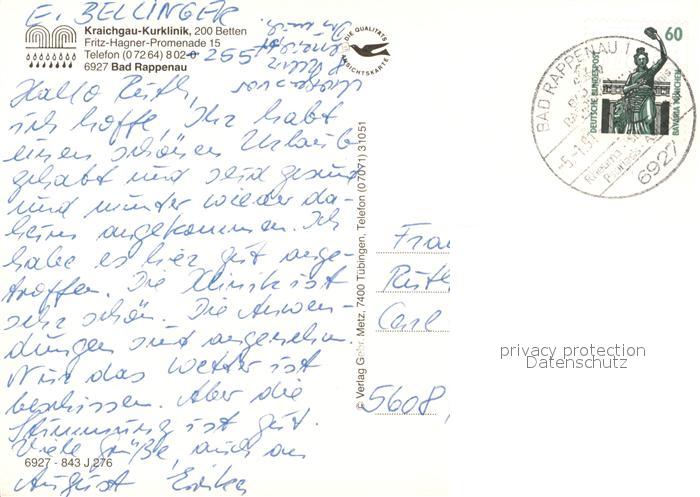 E. BELLINGER
Kraichgau-Kurklinik, 200 Betten
Fritz-Hagner-Promenade 15
Telefon (0 72 64) 8 02-0 255
6927 Bad Rappenau
DIE QUALITÄTS
ANSICHTSKARTE
Hallo Ruth,
ich hoffe, Ihr habt
einen schönen Urlaub
gehabt und seid gesund
und munter wieder da-
heim angekommen. Ich
habe es hier gut ange-
troffen. Die Klinik ist
sehr schön. Die Anwen-
dungen sind angenehm.
Nur das Wetter ist
beschissen. Aber die
Stimmung ist gut.
Viele Grüße, auch an
August Erika
6927 - 843 J 276
© Verlag Gebr. Metz, 7400 Tübingen, Telefon (07071) 31051
60
DEUTSCHE BUNDESPOST
BAVARIA MÜNCHEN
BAD RAPPENAU 1
6927
Frau
Ruth
Carl
5608,
privacy protection
Datenschutz